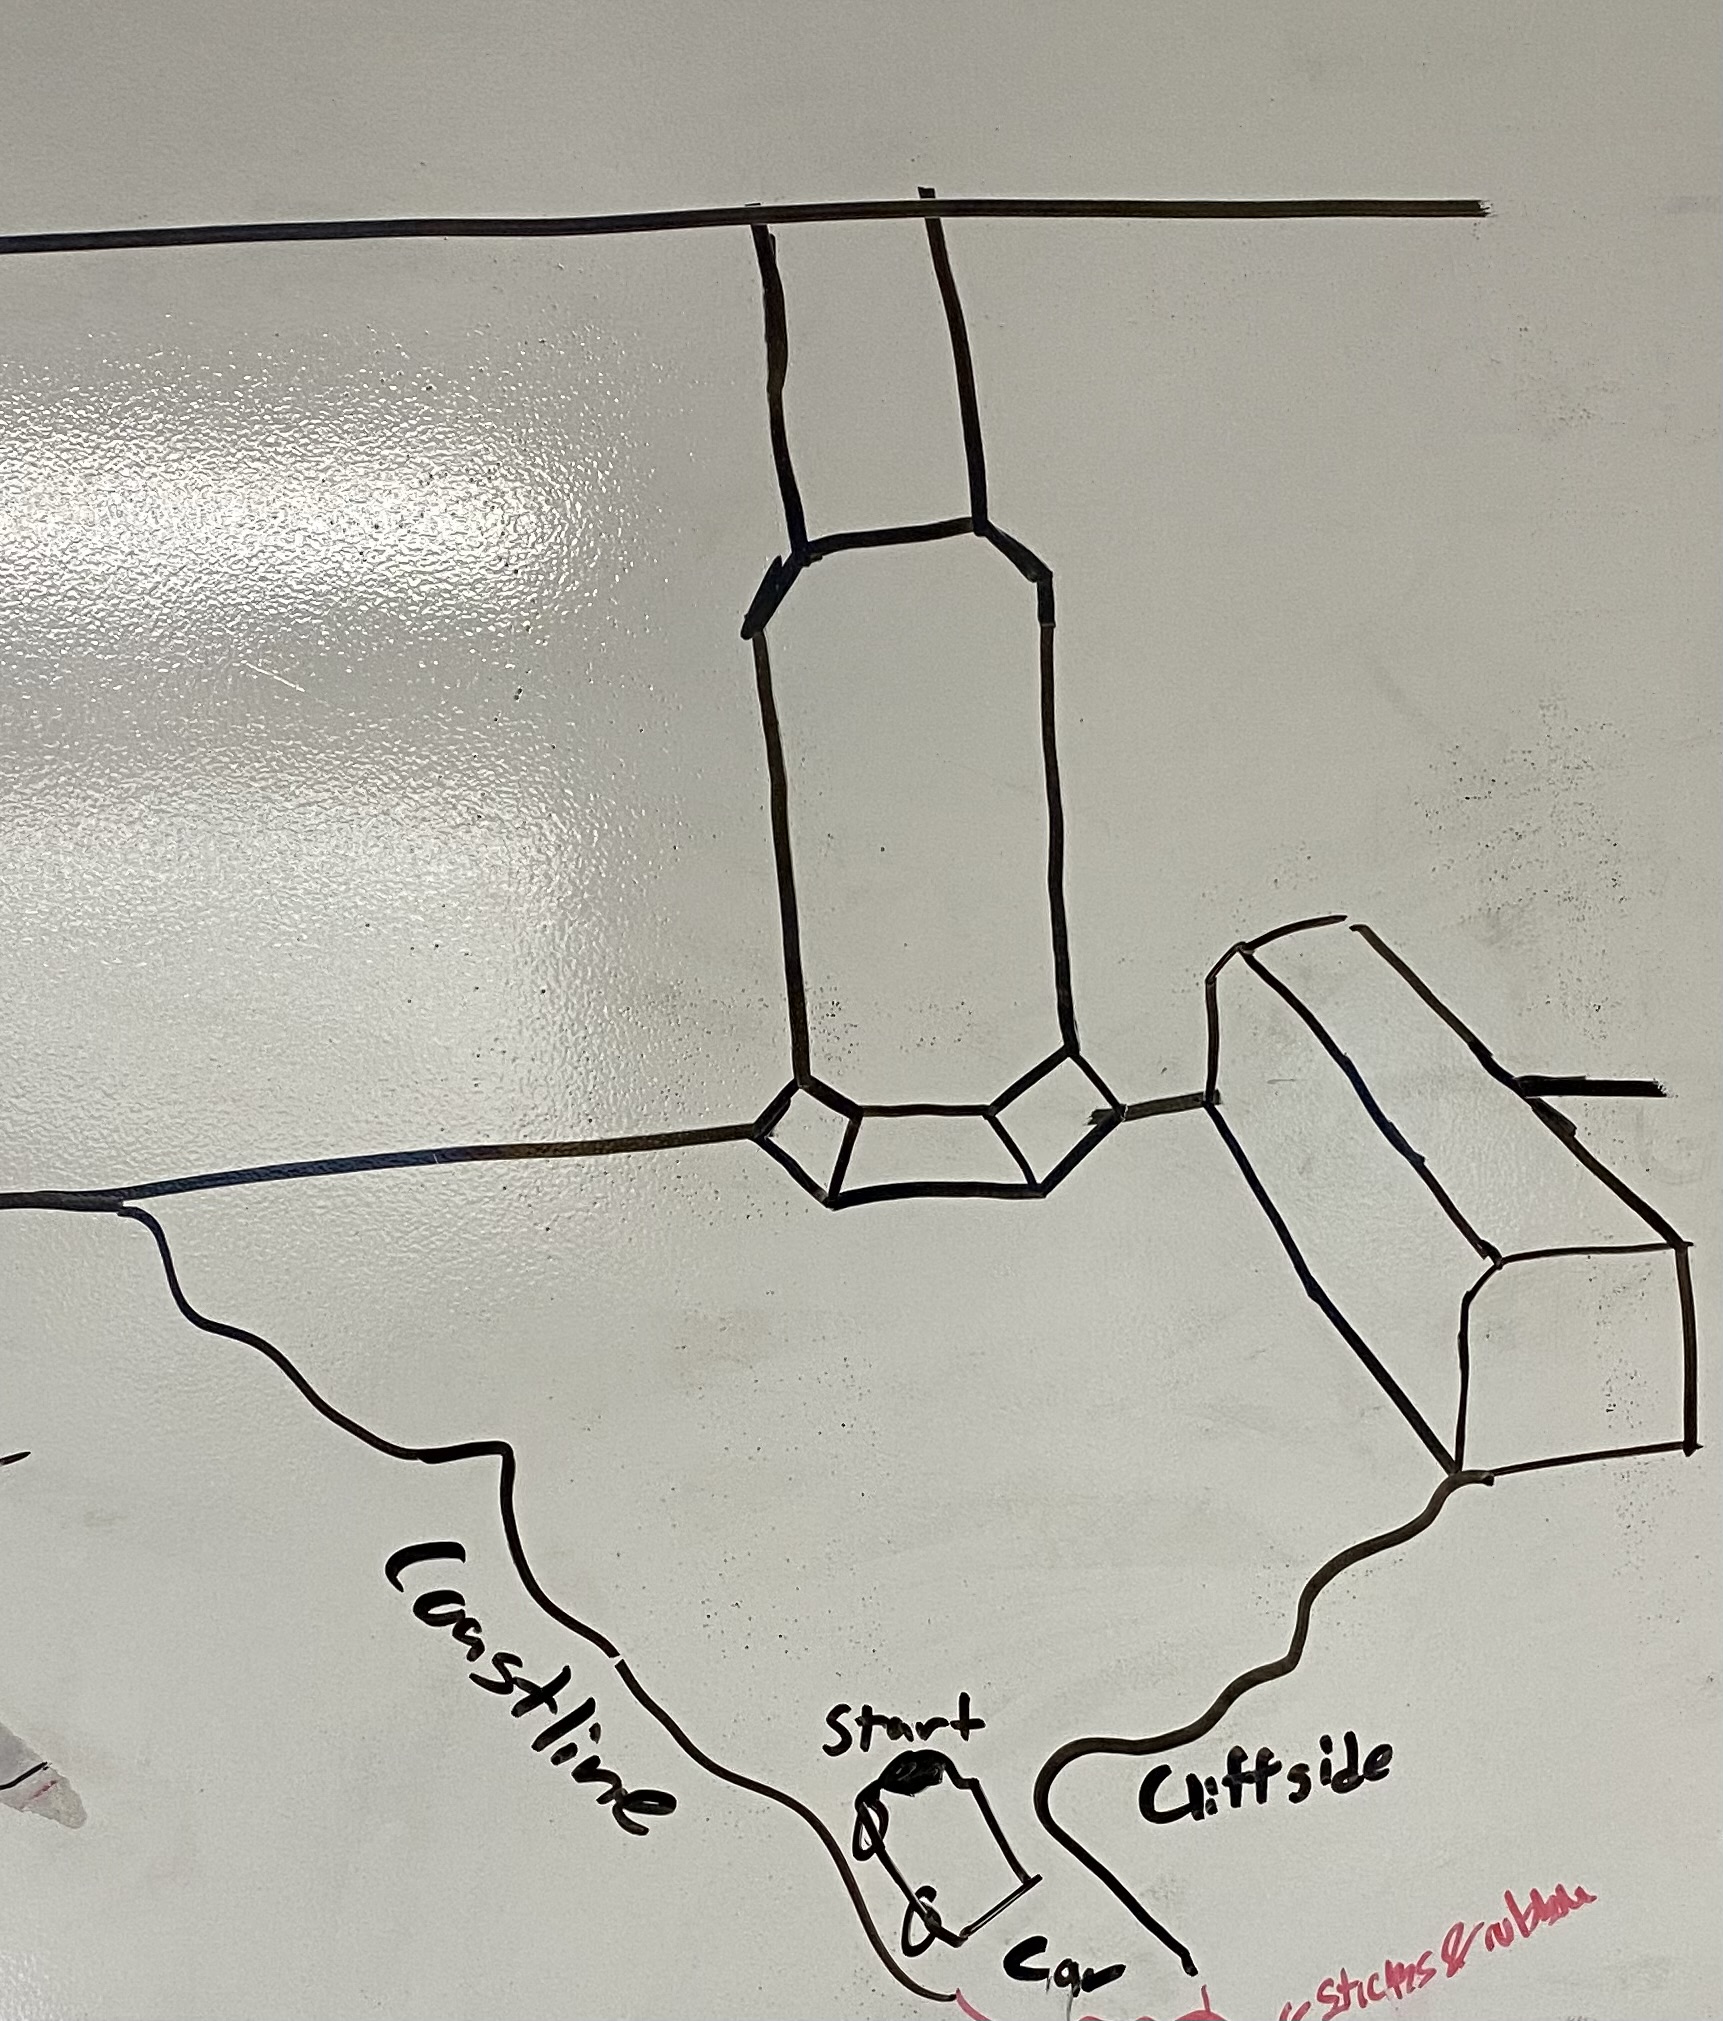 Coastline
Start
Cliffside
Car
sticks & rubble